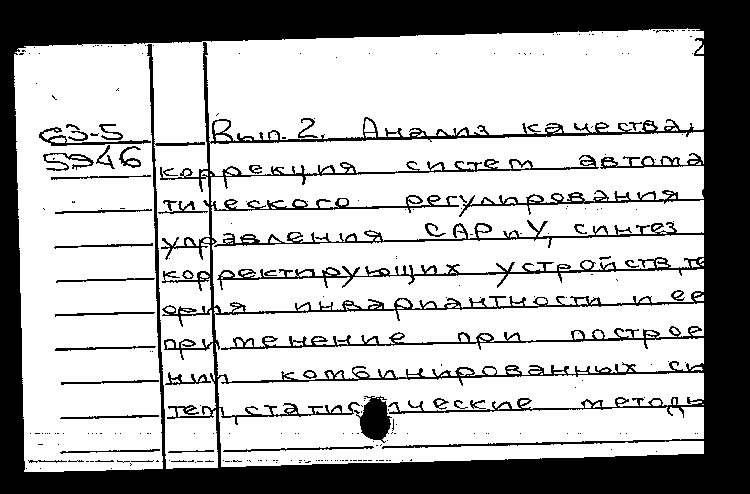 2
63-5 Вып. 2. Анализ качества,
5946 коррекция систем автома
тического регулирования
управления САР и У, синтез
корректирующих устройств, те
ория инвариантности и ее
применение при построе
нии комбинированных си
тем, статистические методы